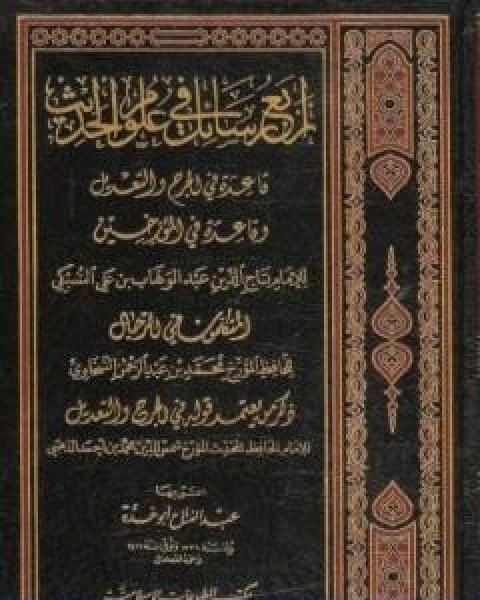 أربع رسائل في علوم الحديث
قاعدة في الجرح والتعديل
وقاعدة في المؤرخين
للإمام تاج الدين عبد الوهاب بن علي السبكي
المتكلمون في الرجال
للحافظ المؤرخ محمد بن عبد الرحمن السخاوي
ذكر من يعتمد قوله في الجرح والتعديل
للإمام الحافظ المحدث المؤرخ شمس الدين محمد بن أحمد الذهبي
اعتنى بها
عبد الفتاح أبو غدة
رحمه الله تعالى
مكتب المطبوعات الإسلامية